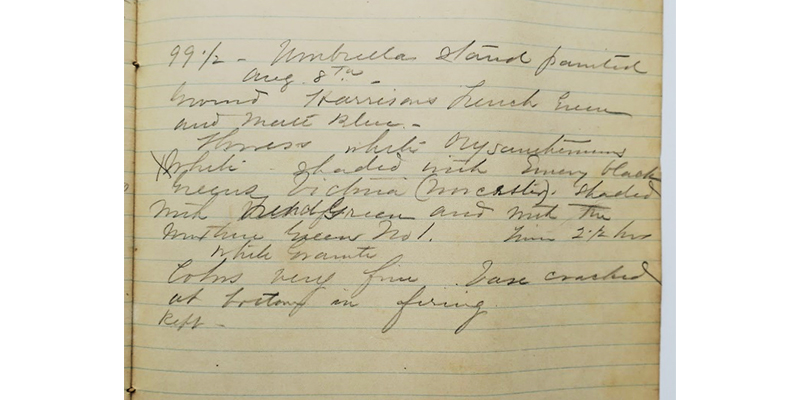 99 1/2 - Umbrella Stand painted
Aug. 8th -
Ground Harrisons French Green
and Matt Blue. -
Flowers white Crysanthemums
White shaded with Emery black
Greens Victoria (Worcester). Shaded
with Green and with the
Green No 1. Time 2 1/2 hrs
White Granite
Colors very fine. Vase cracked
at bottom in firing.
Kept -